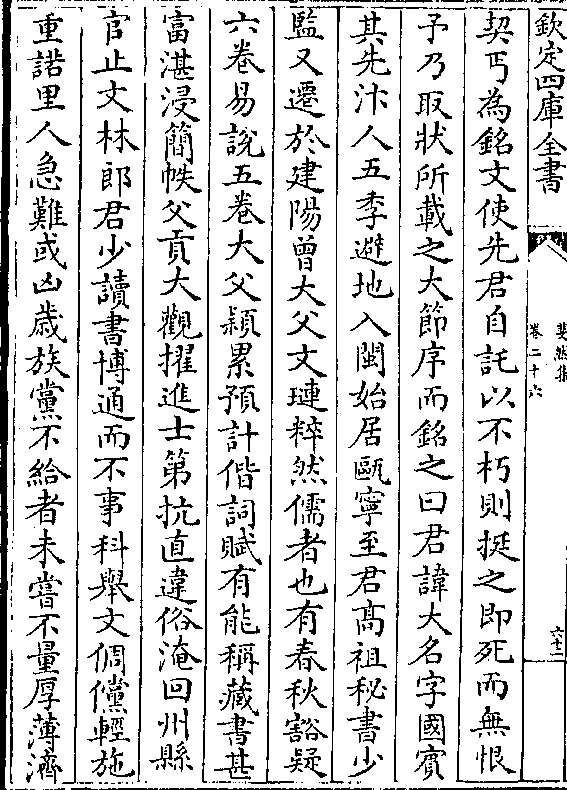 欽定四庫全書
斐然集
卷二十六
六十二
契丐為銘文使先君自託以不朽則挺之即死而無恨
予乃取狀所載之大節序而銘之曰君諱大名字國賓
其先汴人五季避地入閩始居甌寧至君高祖秘書少
監又遷於建陽曾大父文璉粹然儒者也有春秋豁疑
六卷易說五卷大父潁累預計偕詞賦有能稱藏書甚
富湛浸簡帙父貢大觀擢進士第抗直違俗淹回州縣
官止文林郎君少讀書博通而不事科舉文倜儻輕施
重諾里人急難或凶歲族黨不給者未嘗不量厚薄濟